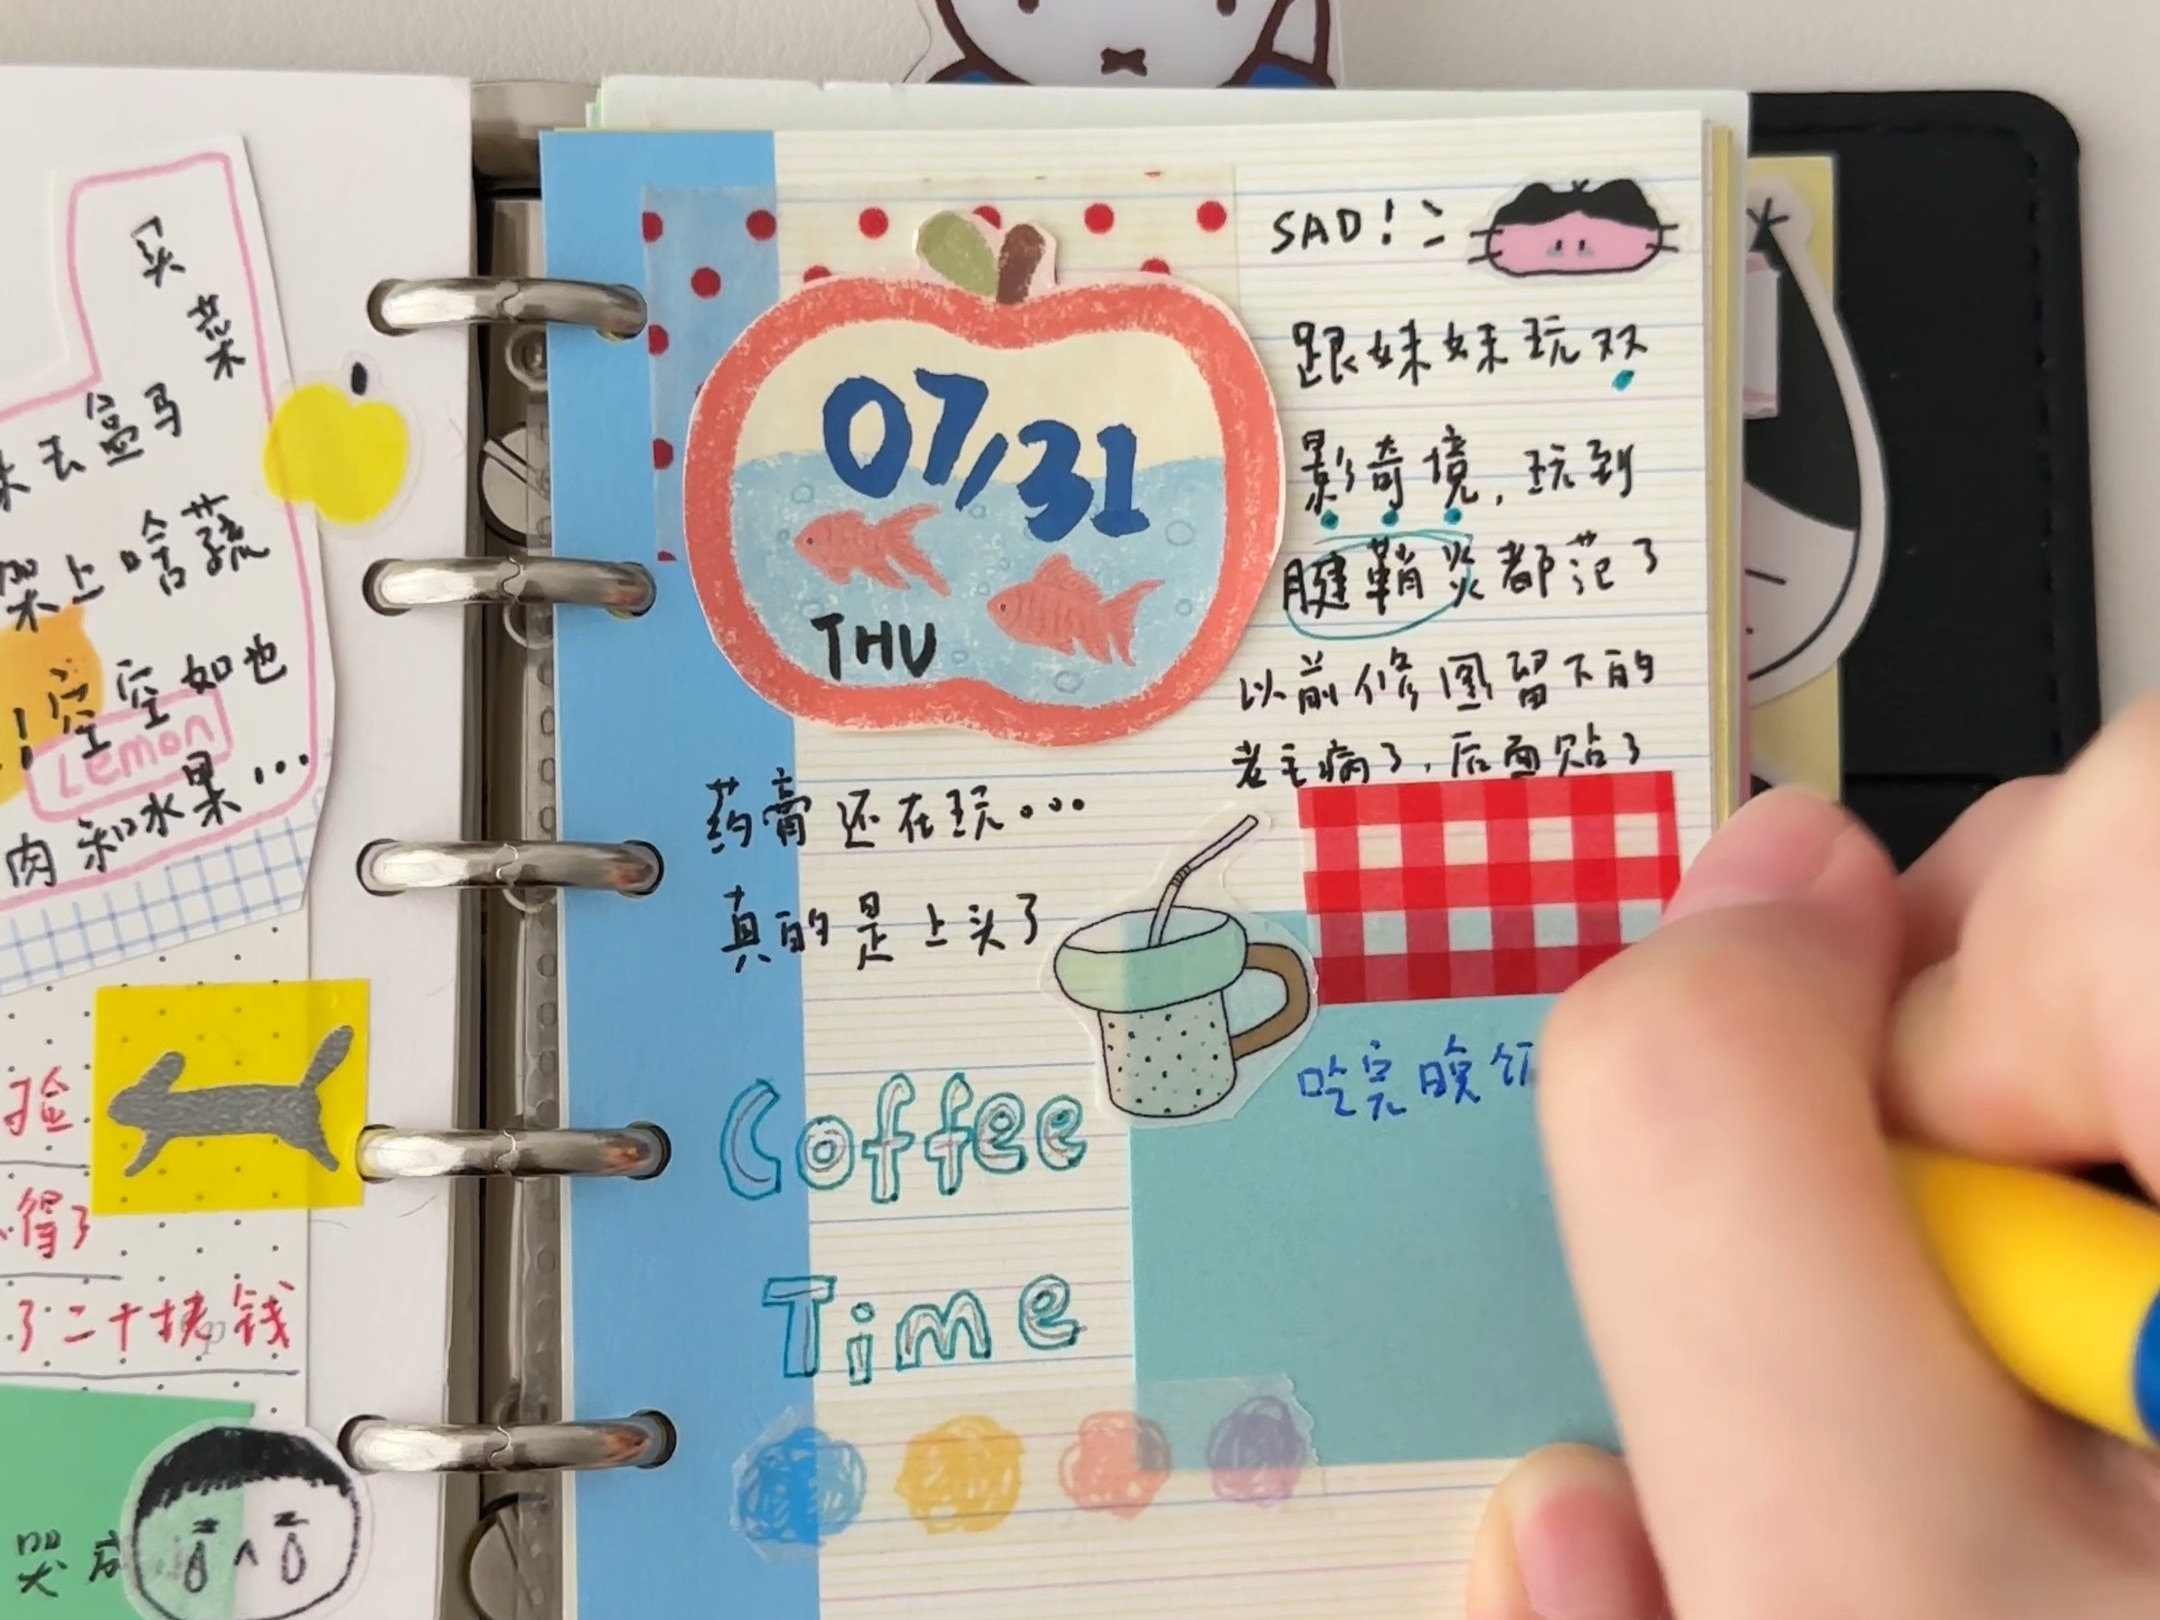 买
菜
去盒马
架上啥蔬
！空空如也
Lemon
肉和水果...
验
得了
了二十块钱
哭
07/31
THU
SAD！
跟妹妹玩双
影奇境，玩到
腱鞘炎都范了
以前修图留下的
老毛病了，后面贴了
药膏还在玩...
真的是上头了
吃完晚饭
Coffee
Time